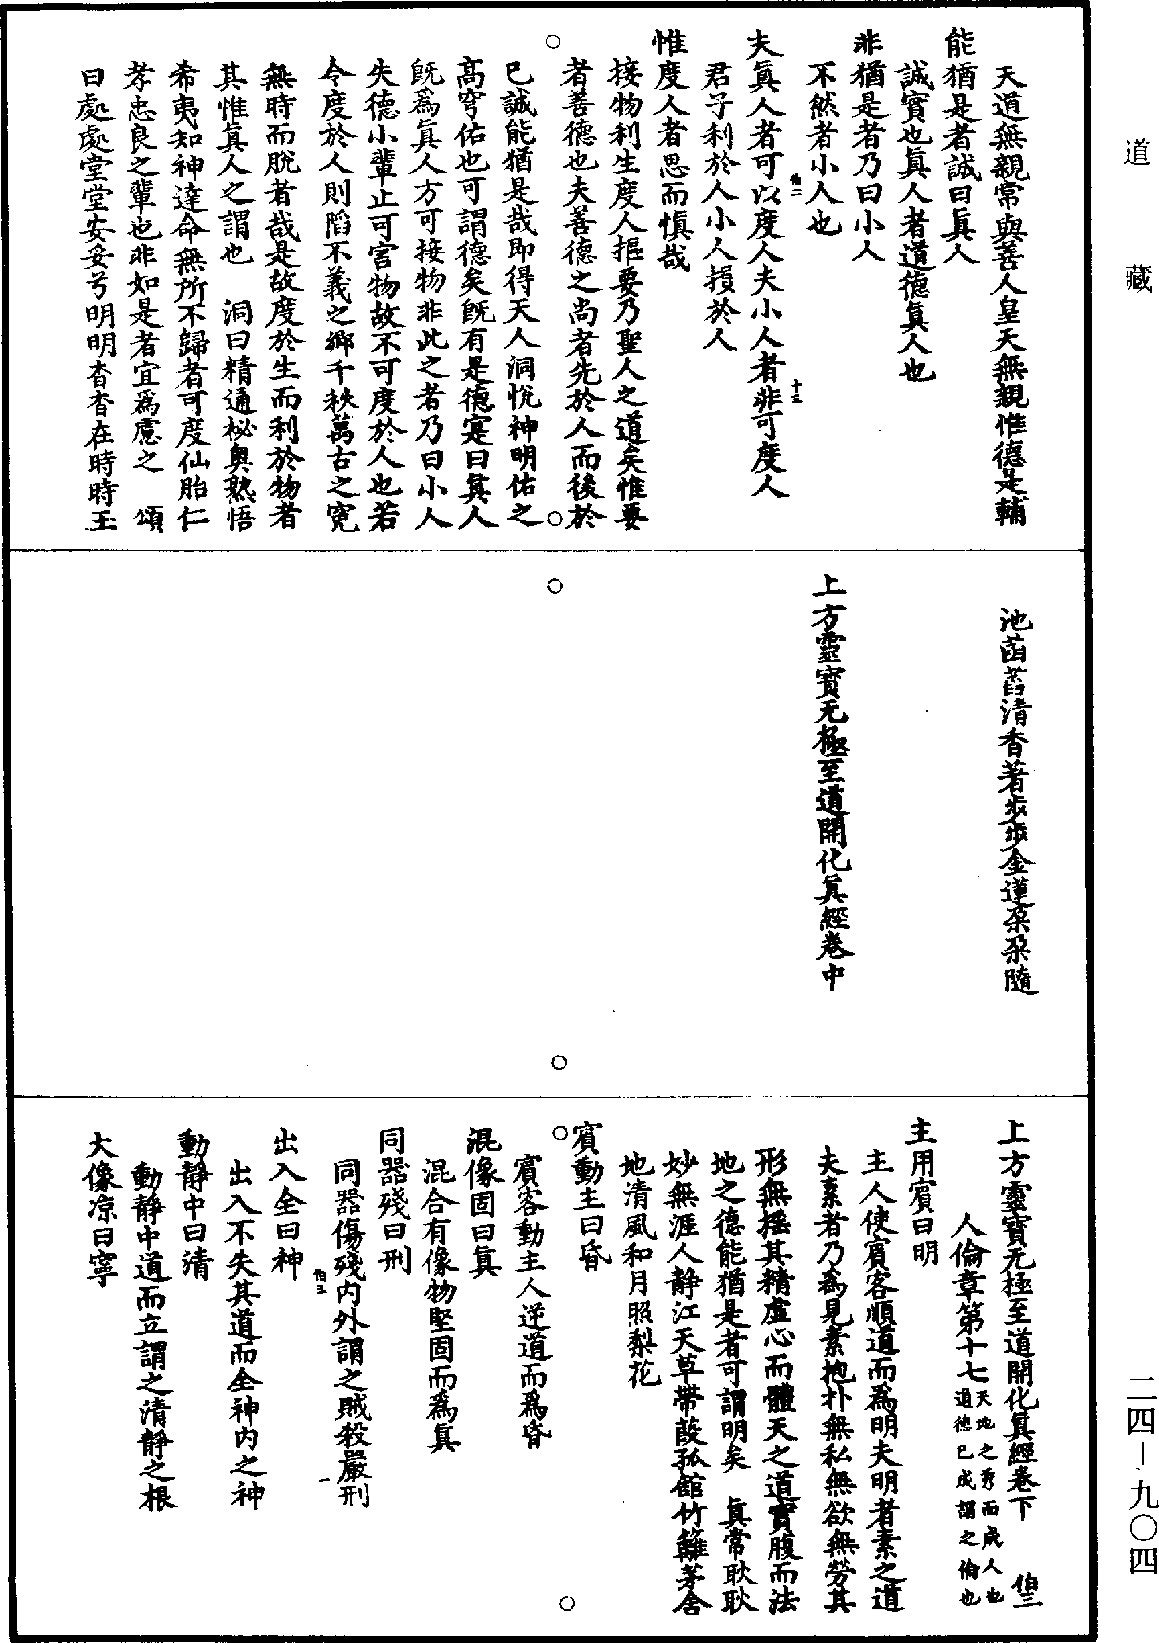 道藏
天道無親常與善人皇天無親惟德是輔
能猶是者誠曰眞人
誠實也眞人者道德眞人也
非猶是者乃曰小人
不然者小人也
夫眞人者可以度人夫小人者非可度人
伯二
十三
君子利於人小人損於人
惟度人者思而愼哉
接物利生度人摳要乃聖人之道矣惟要
者善德也夫善德之尚者先於人而後於
已誠能猶是哉即得天人洞悅神明佑之
高穹佑也可謂德矣旣有是德寔曰眞人
旣爲眞人方可接物非此之者乃曰小人
失德小輩止可害物故不可度於人也若
令度於人則陷不義之鄉千秧萬古之寃
無時而脫者哉是故度於生而利於物者
其惟眞人之謂也　洞曰精通祕奥熟悟
希夷知神達命無所不歸者可度仙胎仁
孝忠良之輩也非如是者宜爲慮之　頌
曰處處堂堂安妥兮明明杳杳在時時玉
池菡萏清香著步步金蓮朶朶隨
上方靈寳无極至道開化眞經卷中
上方靈寳无極至道開化眞經卷下　伯三
人倫章第十七天地之秀而成人也道德已成謂之倫也
主用賓曰明
主人使賓客順道而爲明夫明者素之道
夫素者乃爲見素抱朴無私無欲無勞其
形無摇其精虚心而體天之道實腹而法
地之德能猶是者可謂明矣　眞常耿耿
妙無涯人静江天草帶葭孤館竹籬茅舍
地清風和月照梨花
賓動主曰昏
賓客動主人逆道而爲昏
混像固曰眞
混合有像物堅固而爲眞
同器殘曰刑
同器傷殘内外謂之賊殺嚴刑
伯三
一
出入全曰神
出入不失其道而全神内之神
動静中曰清
動静中道而立謂之清静之根
大像凉曰寧
二四—九〇四